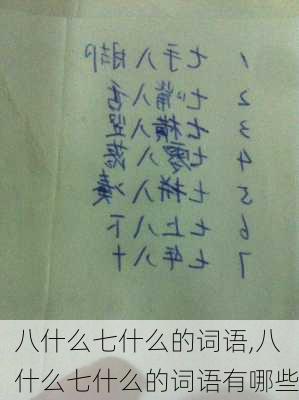 1 七手八脚
2 七嘴八舌
3 七横八竖
4 七零八落
5 七拼八凑
6 七上八下
7 七年八十
八什么七什么的词语,八
什么七什么的词语有哪些